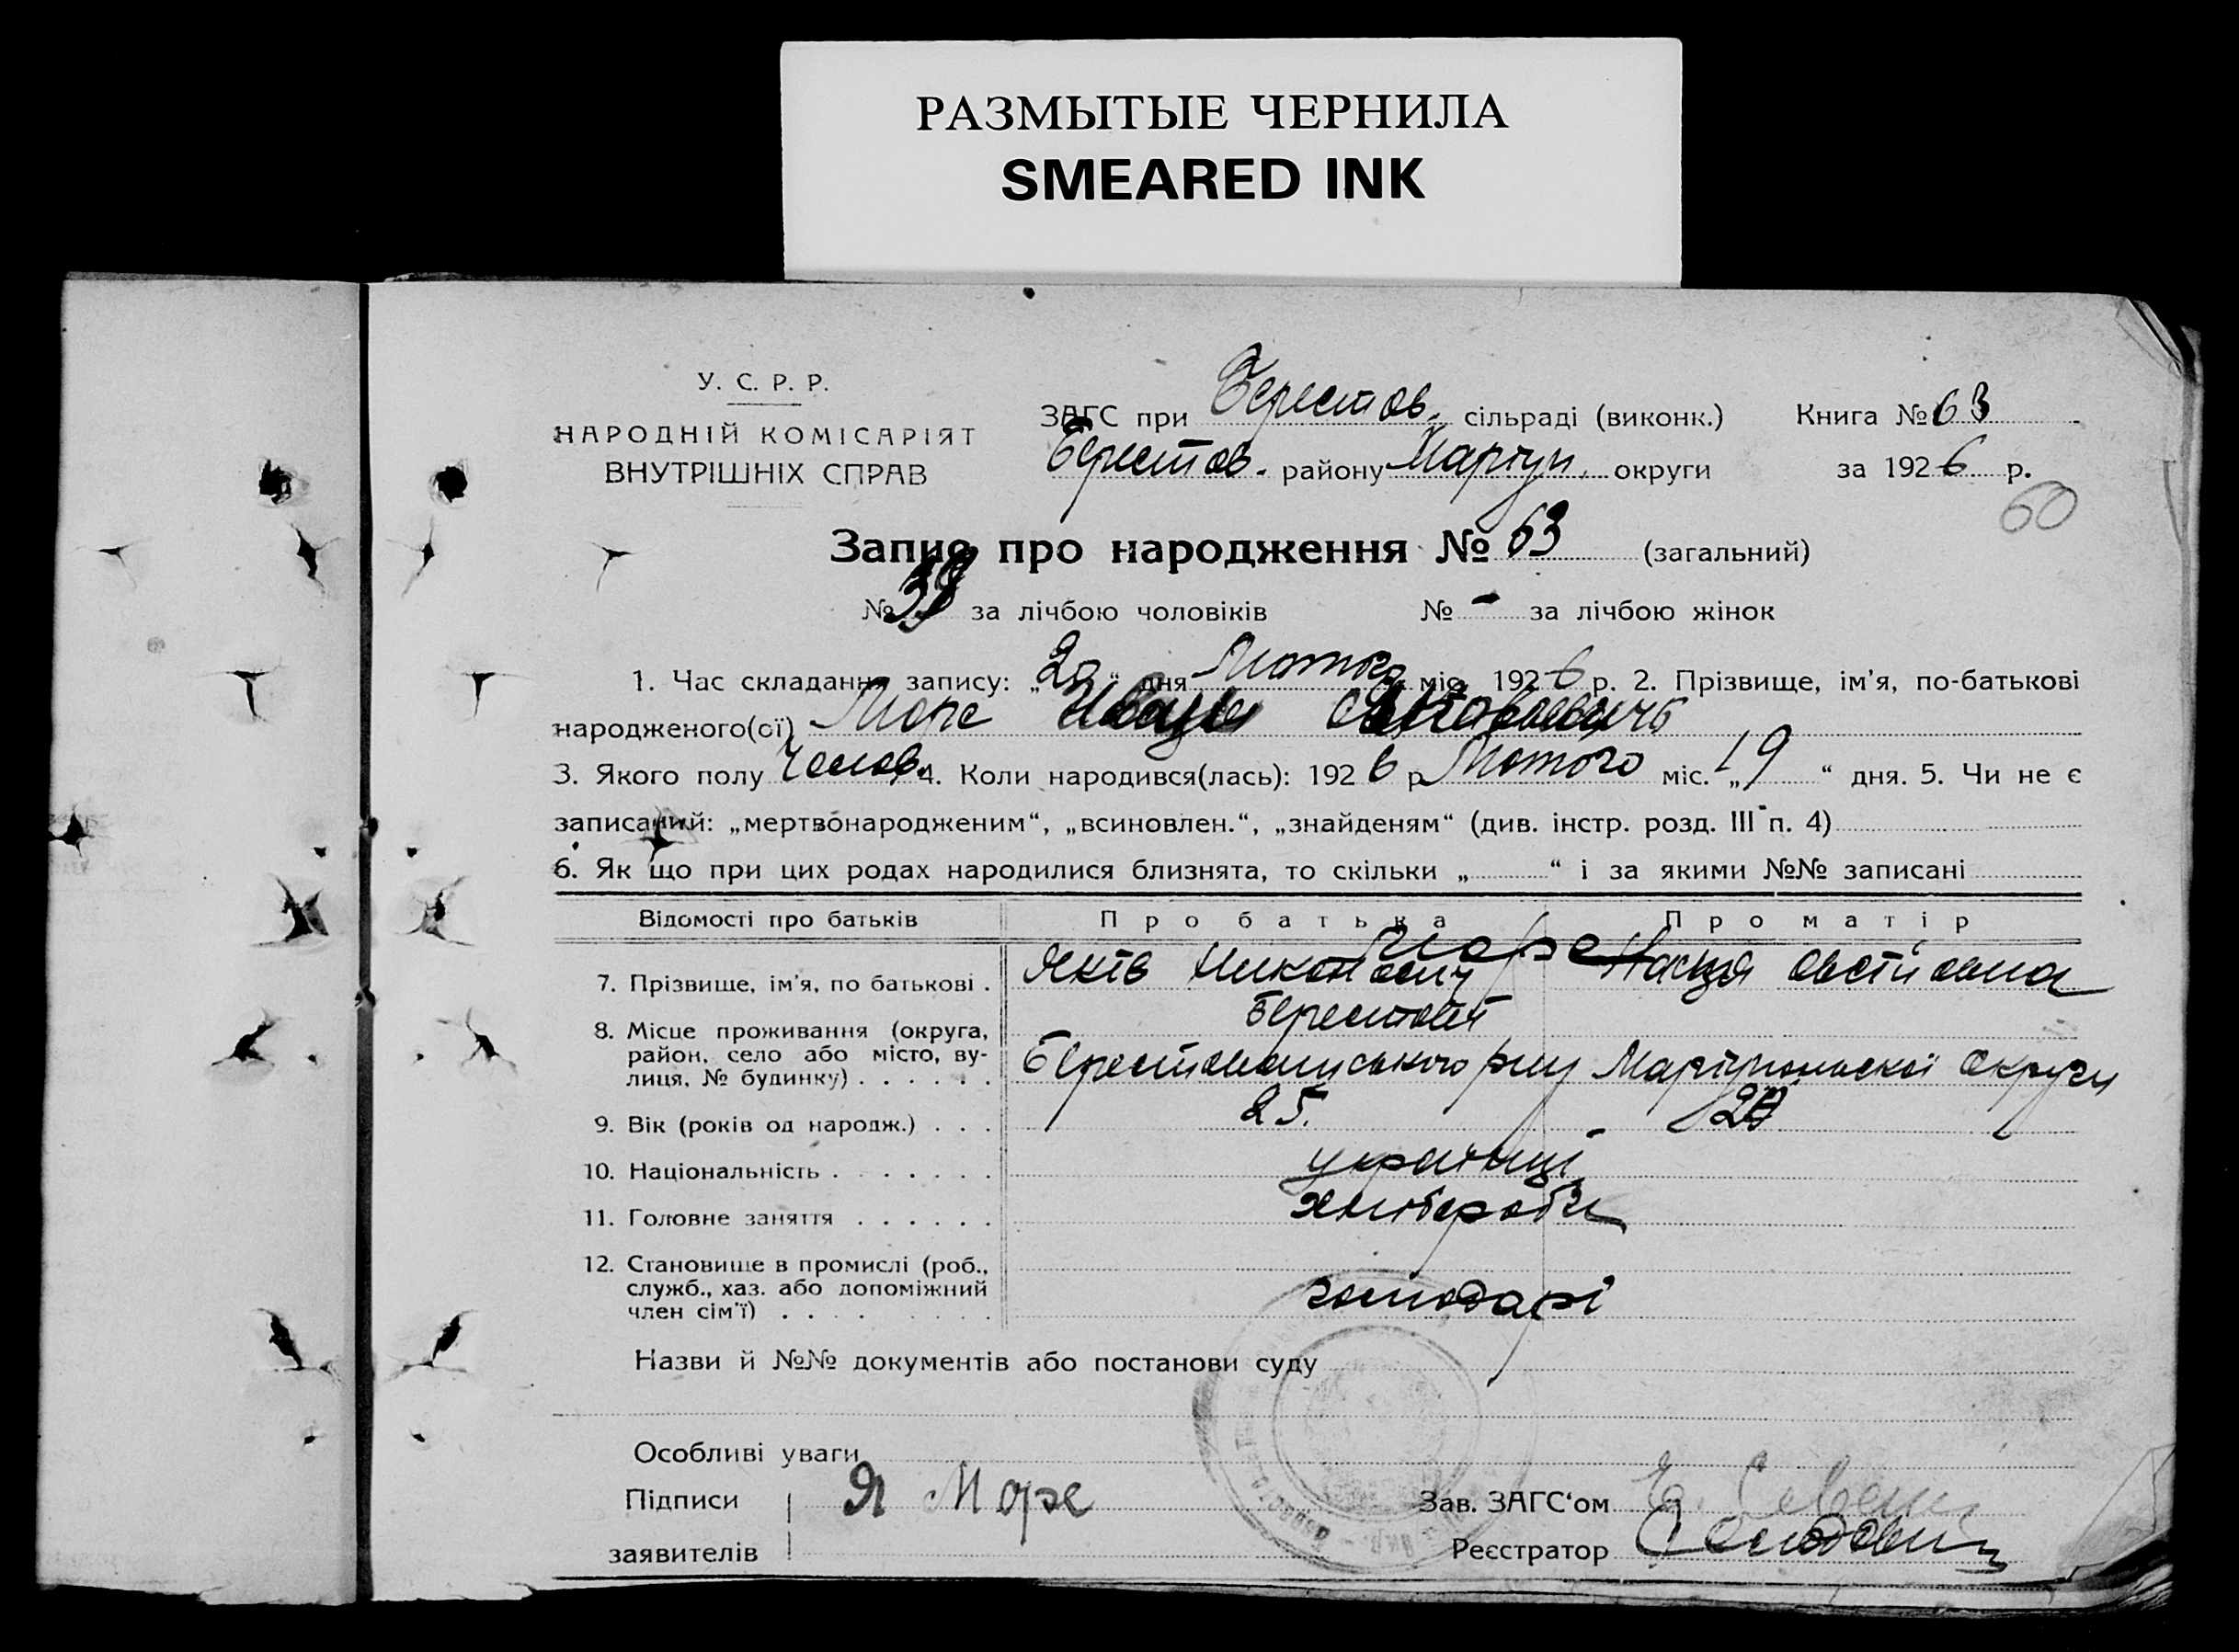 РАЗМЫТЫЕ ЧЕРНИЛА
SMEARED INK
У. С. Р. Р.
НАРОДНІЙ КОМІСАРІЯТ
ВНУТРІШНІХ СПРАВ
ЗАГС при Берестов. сільраді (виконк.) Книга № 63
Берестов. району Маріуп. округи за 1926 р.
60
Запис про народження № 63 (загальний)
№ 38 за лічбою чоловіків № - за лічбою жінок
1. Час складання запису: „20“ дня Лютого міс. 1926 р. 2. Прізвище, ім'я, по-батькові
народженого(ої) Море Иван Яковлевичъ
3. Якого полу Чолов. 4. Коли народився(лась): 1926 р. Лютого міс. „19“ дня. 5. Чи не є
записаний: „мертвонародженим“, „всиновлен.“, „знайденям“ (див. інстр. розд. III п. 4)
6. Як що при цих родах народилися близнята, то скільки „ “ і за якими №№ записані
Відомості про батьків Про батька Про матір
Море
7. Прізвище, ім'я, по батькові . Яків Никонович Настя
Берестове
8. Місце проживання (округа, район, село або місто, ву-
лиця, № будинку) . . . . . . Берестовського р-ну Маріупольскої округи
9. Вік (років од народж.) . . . 25. 20
10. Національність . . . . . . . українці
11. Головне заняття . . . . . . хлібороби
12. Становище в промислі (роб.,
служб., хаз. або допоміжний
член сім'ї) . . . . господарі
Назви й №№ документів або постанови суду
Особливі уваги
Підписи Я Море Зав. ЗАГС'ом
заявителів Реєстратор